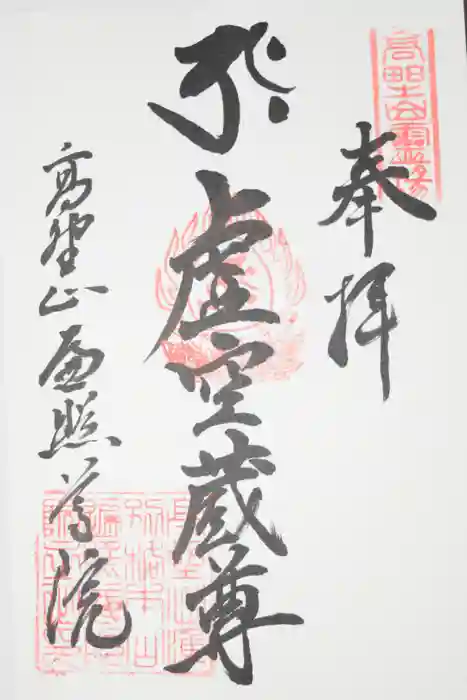 高野山霊場
奉拝
虚空蔵尊
高野山遍照尊院